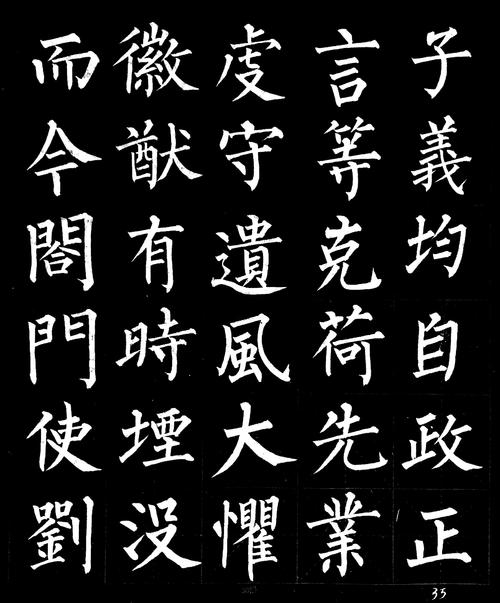 子義均自政正
言等克荷先業
虔守遺風大懼
徽猷有時堙没
而今閤門使劉
33